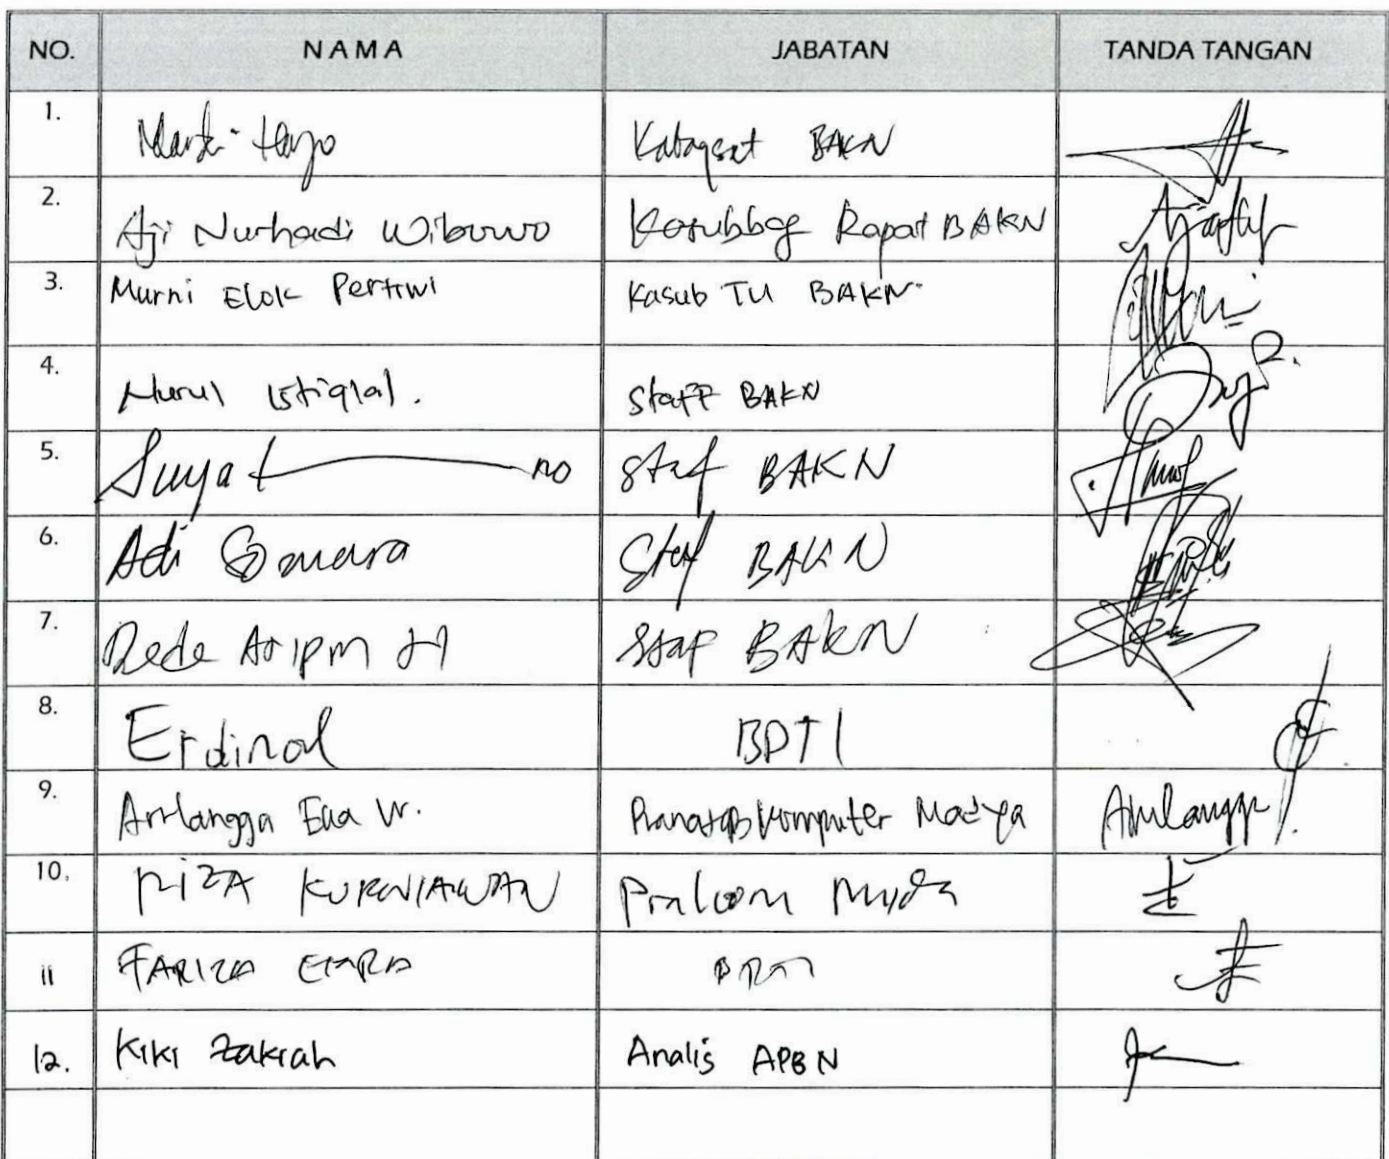 NO. NAMA JABATAN TANDA TANGAN
1. Hayo BAKN
2. Aji Nurhadi Wibowo Kasubbag Rapat BAKN
3. Murni Elok Pertiwi Kasub TU BAKN
4. Nurul Istiqlal. Staff BAKN
5. Suyatno Staf BAKN
6. Adi Staf BAKN
7. Dede Aripin H Staf BAKN
8. Erdinal BPTI
9. Arlangga Eka W. Pranata Komputer Madya
10. RIZA KURNIAWAN Prakom Muda
11 FARIZA
12. Kiki Zakiah Analis APBN